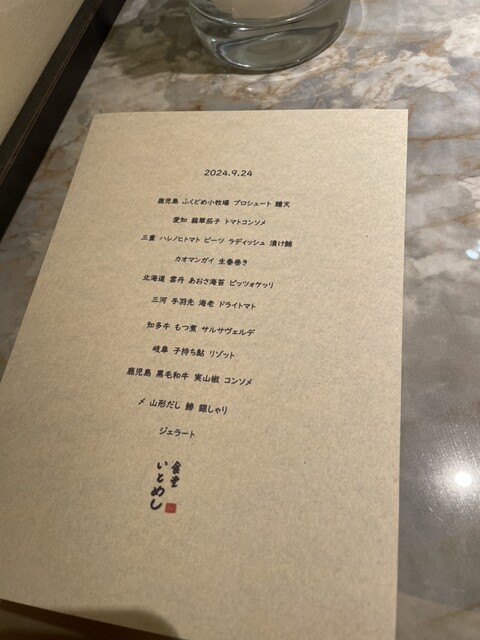 2024.9.24
鹿児島 ふくどめ小牧場 プロシュート 鱧天
愛知 翡翠茄子 トマトコンソメ
三重 ハレノヒトマト ビーツ ラディッシュ 漬け鮪
カオマンガイ 生春巻き
北海道 雲丹 あおさ海苔 ピッツォケッリ
三河 手羽先 海老 ドライトマト
知多牛 もつ煮 サルサヴェルデ
岐阜 子持ち鮎 リゾット
鹿児島 黒毛和牛 実山椒 コンソメ
〆 山形だし 鯵 銀しゃり
ジェラート
食堂
いとめし